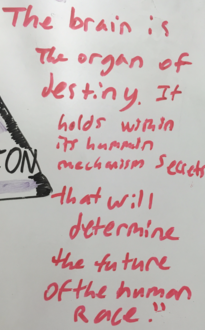 The brain is
the organ of
destiny. It
holds within
its hummin
mechanism secrets
that will
determine
the future
of the human
Race."
ON